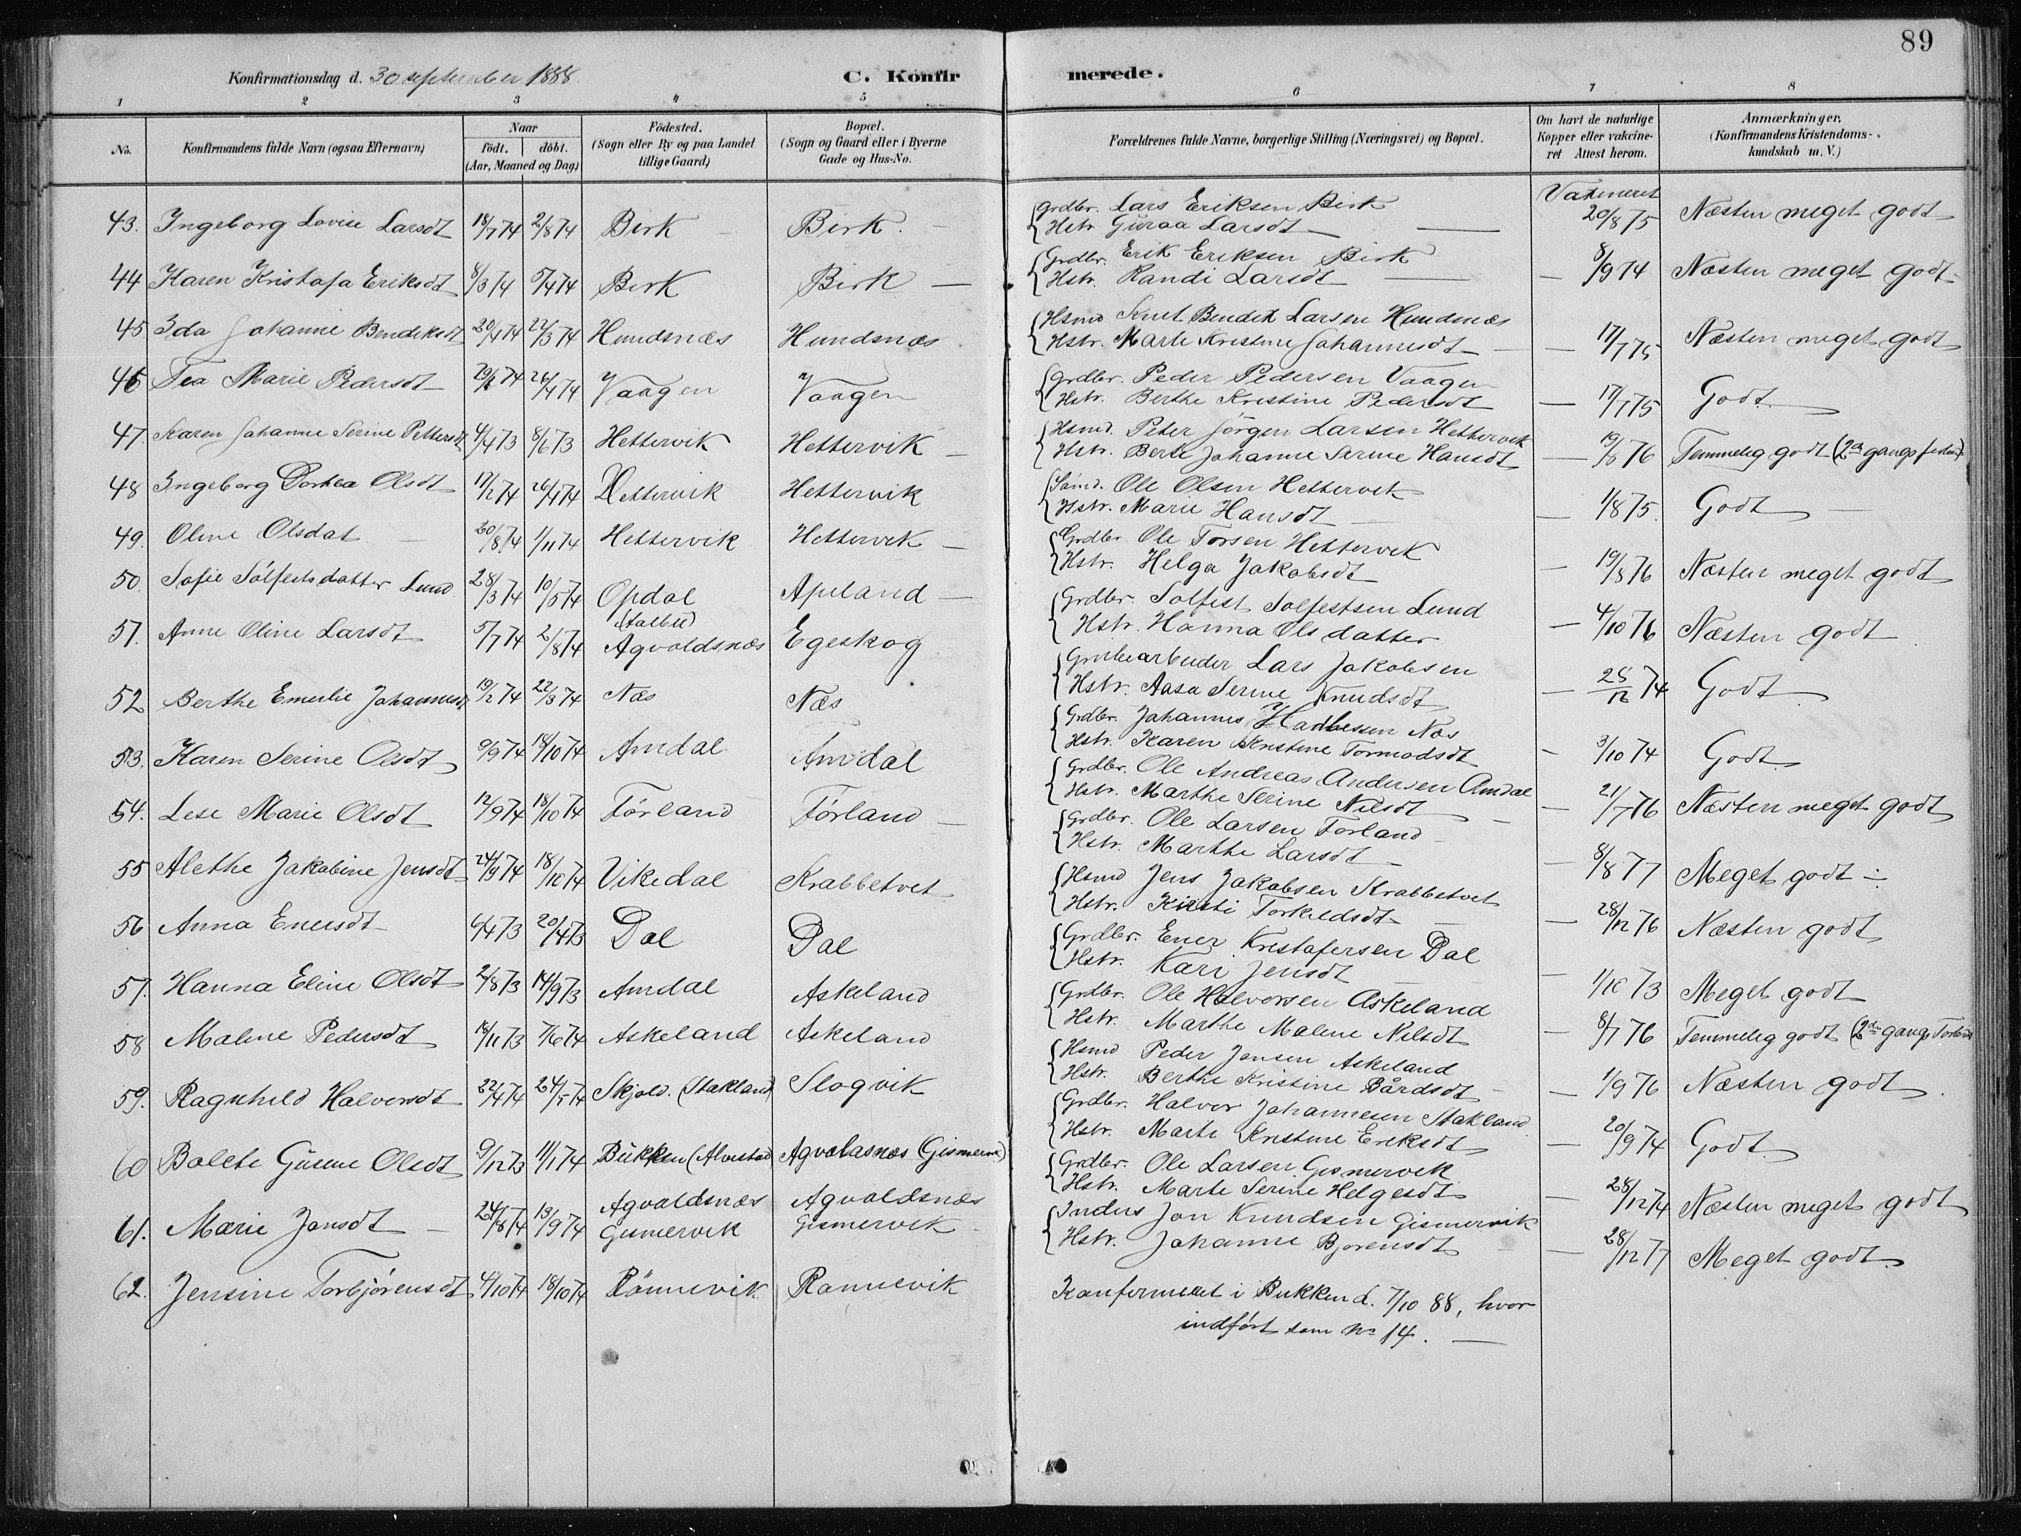 89
Konfirmationsdag d. 30 september 1888.
C. Konfirmerede.
1 2 3 4 5 6 7 8
No.
Konfirmandens fulde Navn (ogsaa Efternavn)
Naar
födt. döbt.
(Aar, Maaned og Dag)
Födested.
(Sogn eller By og paa Landet
tillige Gaard)
Bopæl.
(Sogn og Gaard eller i Byerne
Gade og Hus-No.
Forældrenes fulde Navne, borgerlige Stilling (Næringsvei) og Bopæl.
Om havt de naturlige
Kopper eller vakcine-
ret Attest herom.
Anmærkninger.
(Konfirmandens Kristendoms-
kundskab m. V.)
43. Ingeborg Lovise Larsdt 18/7 74 2/8 74 Birk Birk. Grdbr. Lars Eriksen Birk Vaxineret
Hstr. Guraa Larsdt 20/8 75 Næsten meget godt
44 Karen Kristofa Eriksdt 8/3 74 5/4 74 Birk Birk Grdbr. Erik Eriksen Birk
Hstr. Randi Larsdt — 8/9 74 Næsten meget godt
45 Ida Johanne Bendiksdt 20/1 74 22/3 74 Hundsnæs Hundsnæs Hsmd Knut Bendik Larsen Hundsnæs
Hstr. Marte Kristine Johannesdt — 17/7 75 Næsten meget godt
46 Tea Marie Pedersdt 26/4 74 Vaagen Vaagen Grdbr. Peder Pedersen Vaagen
Hstr. Berthe Kristine Pedersdt — 17/7 75 Godt
47. Karen Johanne Serine Pettersdt 4/4 73 8/6 73 Hettervik Hettervik Hsmd. Peter Jörgen Larsen Hettervik
Hstr. Berte Johanne Serine Hansdt — 19/8 76 Temmelig godt
48 Ingeborg Dorthea Olsdt 17/2 74 26/4 74 Hettervik Hettervik Ole Olsen Hettervik
Hstr. Marie Hansdt — 1/8 75. Godt
49. Oline Olsdat 20/8 74 1/11 74 Hettervik Hettervik Grdbr. Ole Torsen Hettervik
Hstr. Helga Jakobsdt — 19/8 76 Næsten meget godt
50. Sofie Sölfestsdatter Lund 28/3 74 10/5 74 Opdal Apeland Grdbr. Solfest Solfestsen Lund
Hstr. Hanna Olsdatter — 4/10 76 Næsten godt
51. Anne Oline Larsdt 5/7 74 2/8 74 Agvaldsnæs Egeskog Grubearbeider Lars Jakobsen
Hstr. Aasa Serine Knudsdt — 28/12 74 Godt
52 Berthe Emelie Johannesdt 19/2 74 22/3 74 Næs Næs Grdbr. Johannes Næs
Hstr. Karen Kristine Tormodsdt — 3/10 74 Godt
53. Karen Serine Olsdt 9/9 74 18/10 74 Amdal Amdal Grdbr. Ole Andreas Andersen Amdal
Hstr. Marthe Serine Nilsdt — 21/7 76 Næsten meget godt
54. Lese Marie Olsdt 12/9 74 18/10 74 Förland Förland Grdbr. Ole Larsen Förland
Hstr. Marthe Larsdt — 8/8 77 Meget godt
55 Alethe Jakobine Jensdt 24/9 74 18/10 74 Vikedal Krabbetvet Hsmd Jens Jakobsen Krabbetvet
Hstr. Kirsti Torkeldsdt — 28/12 76 Næsten godt
56 Anna Enersdt 6/4 73 20/4 73 Dal Dal Grdbr. Ener Kristofersen Dal
Hstr. Kari Jensdt — 1/10 73 Meget godt
57. Hanna Eline Olsdt 2/8 73 14/9 73 Amdal Askeland Grdbr. Ole Halvorsen Askeland
Hstr. Marthe Malene Nilsdt — 8/7 76 Temmelig godt
58 Malene Pedersdt 7/6 74 Askeland Askeland Hsmd Peder Jansen Askeland
Hstr. Berthe Kristine Bårdsdt — 1/9 76 Næsten godt
59. Ragnhild Halversdt 22/4 74 24/5 74 Skjold. (Stakland) Slogvik Grdbr. Halvor Johannesen Stakland
Hstr. Marte Kristine Eriksdt — 20/9 74 Godt
60 Bolete Olsdt 9/12 73 11/1 74 Bukken (Alvestad) Agvalasnæs (Gismervi) Grdbr. Ole Larsen Gismervik
Hstr. Marte Serine Helgesdt — 28/12 74 Næsten meget godt
61. Marie Jonsdt 24/8 74 13/9 74 Agvaldsnæs Gismervik Agvaldsnæs Gismervik Inders Jon Knudsen Gismervik
Hstr. Johanne Bjorensdt — 28/12 77 Meget godt
62. Jensine Torbjörensdt 4/10 74 18/10 74 Rönnevik Rannevik Konfirmeret i Bukken d. 7/10 88, hvor
indfört som No 14.